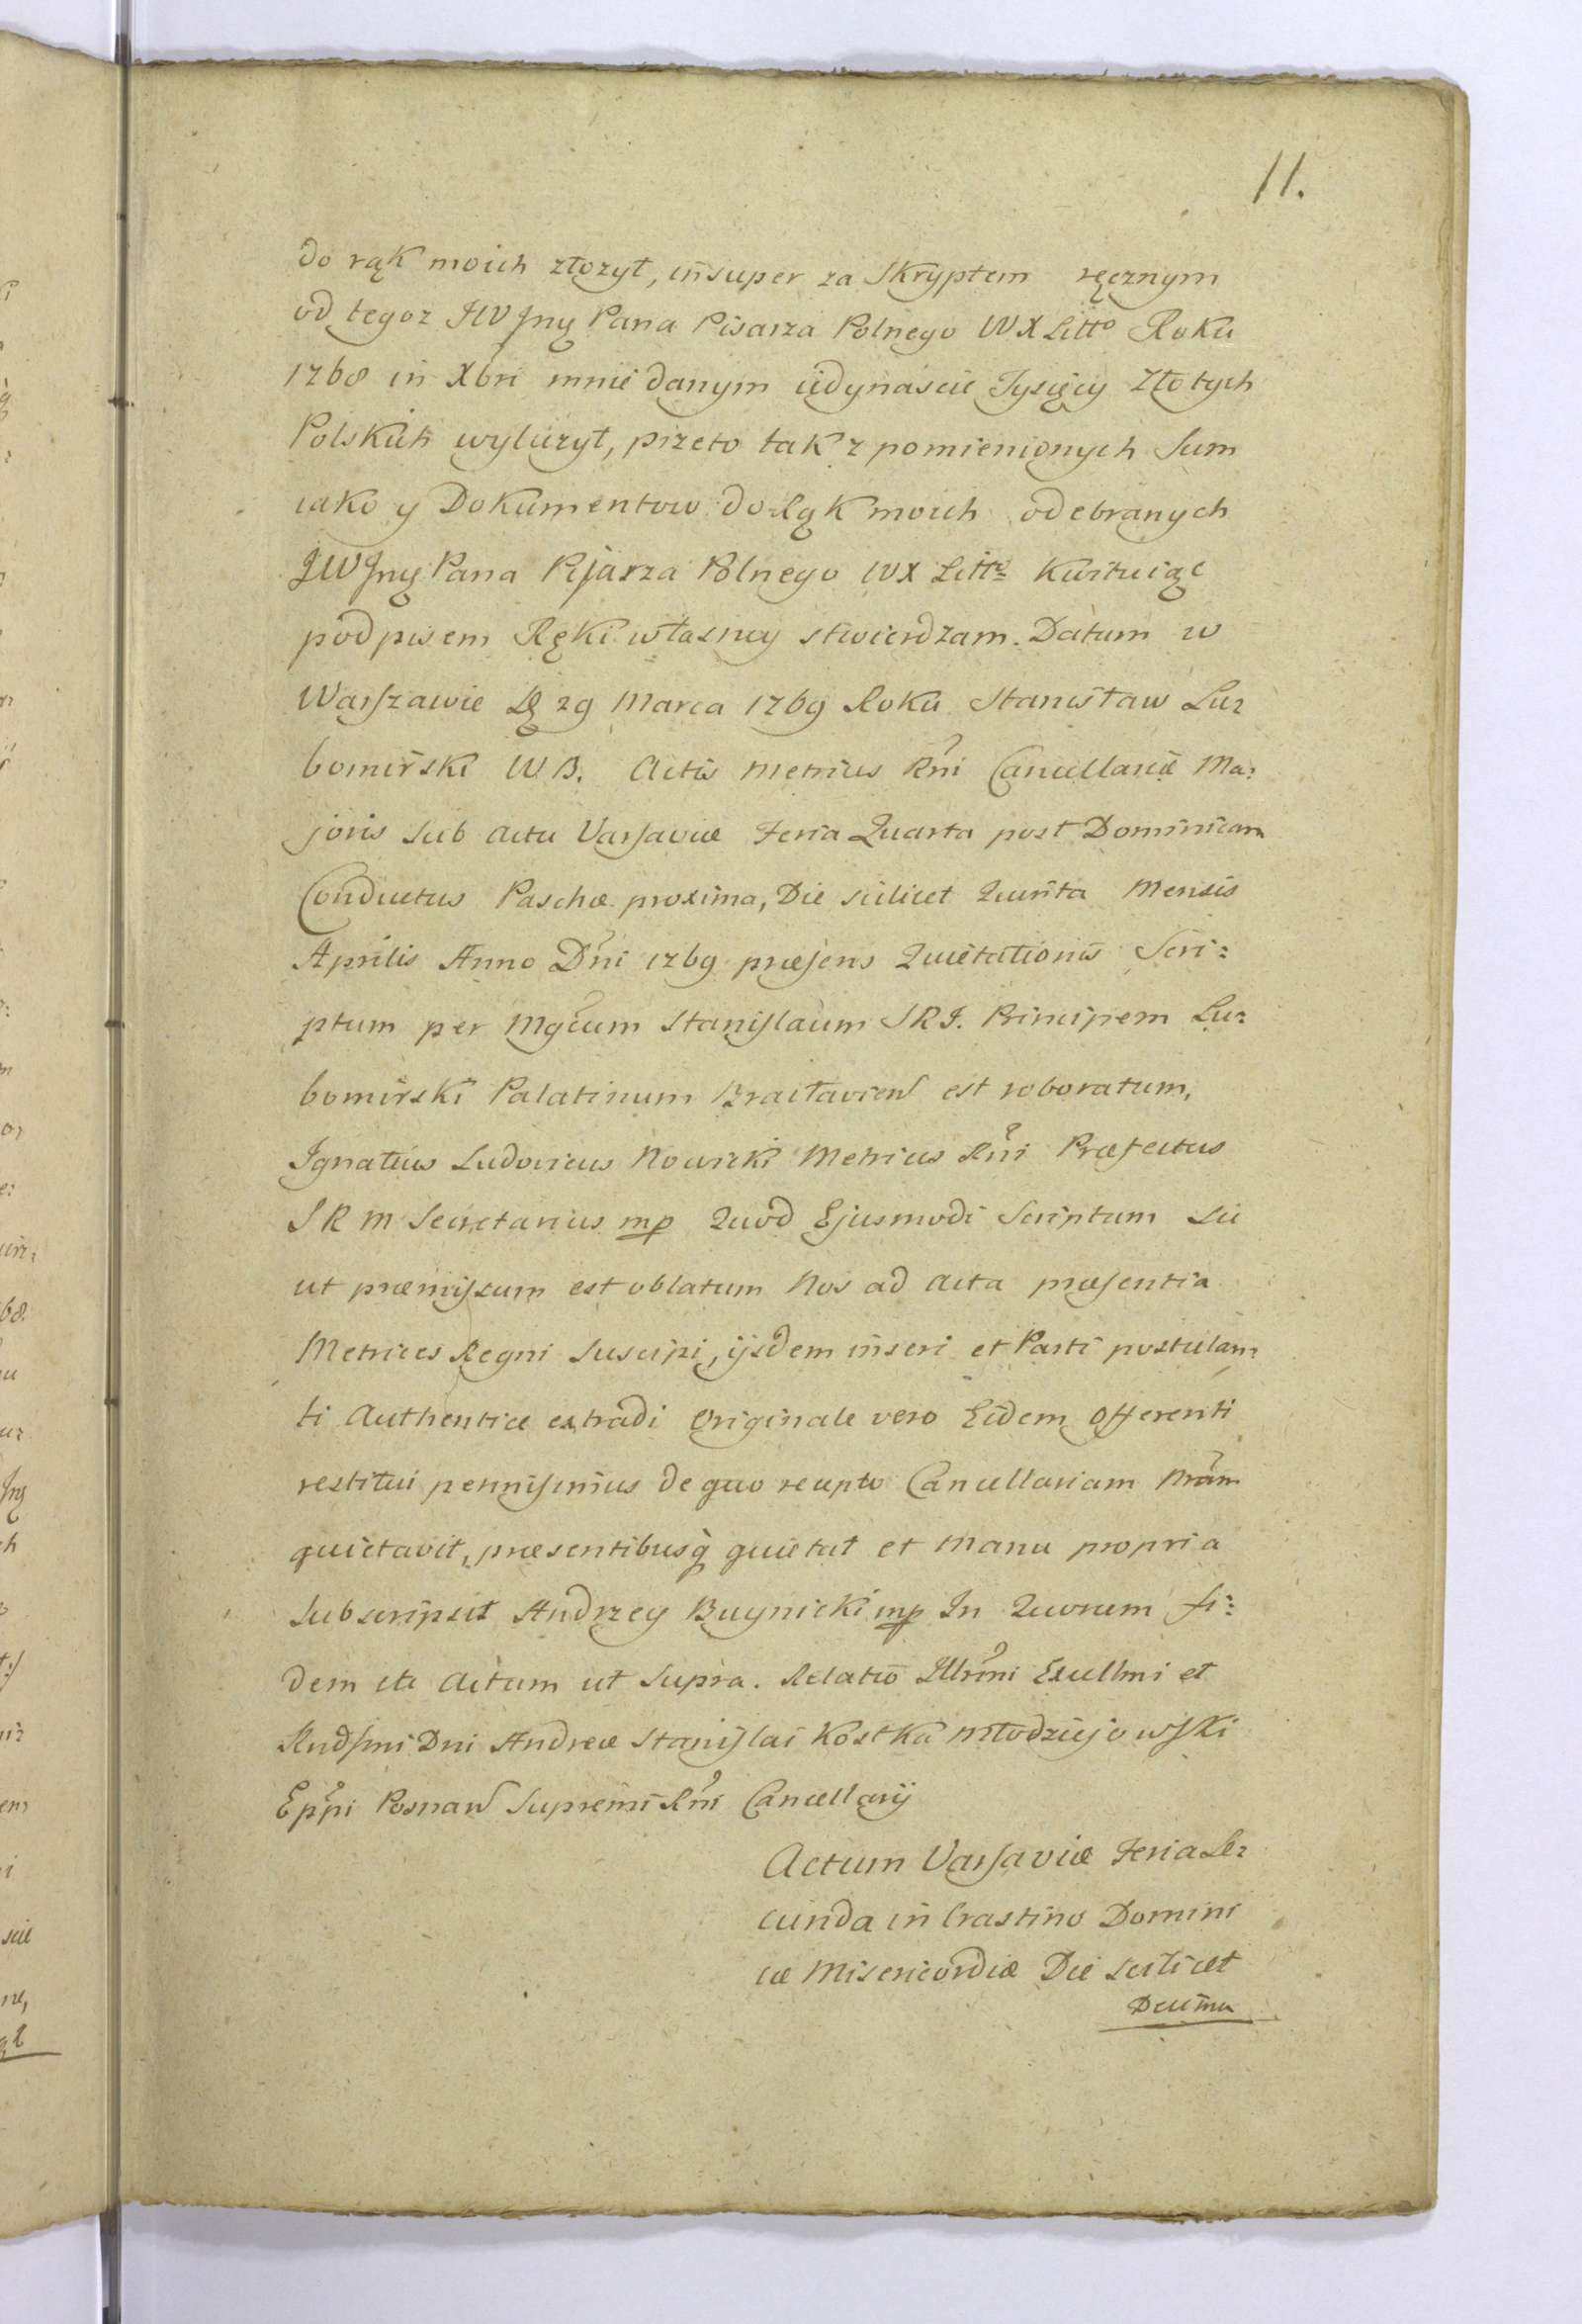 11.
do rąk moich złozył, insuper za Skryptem ręcznym
od tegoz JW Jmę Pana Pisarza Polnego WX Litto Roku
1768 in Xbri mnie danym iedynascie Tysięcy Złotych
Polskich wyliczył, przeto tak z pomienionych Sum
iako y Dokumentow do Rąk moich odebranych
JW Jmę Pana Pisarza Polnego WX Litto Kwituiąc
podpisem Ręki własney stwierdzam. Datum w
Warszawie D 29 Marca 1769 Roku Stanisław Lu=
bomirski WB. Actis Metrices Rni Cancellariæ Ma=
joris sub actu Varsaviæ Feria Quarta post Dominicam
Conductus Paschæ proxima, Die scilicet Quinta Mensis
Aprilis Anno Dni 1769 præsens Quietationis Scri=
ptum per Mgcum Stanislaum SRI. Principem Lu=
bomirski Palatinum Bracłavien est roboratum,
Ignatius Ludovicus Nowicki Metrices Rni Præfectus
SRM Secretarius mp Quod Ejusmodi Scriptum sic
ut præmissum est oblatum Nos ad Acta præsentia
Metrices Regni Suscipi, ijsdem inseri et Parti postulan=
ti Authentice extradi Originale vero Eidem Offerenti
restitui permisimus de quo recepto Cancellariam Nram
quietavit, præsentibusq quietat et Manu propria
Subscripsit Andrzey Buynicki mp In Quorum fi=
dem etc Actum ut Supra. Relatio Illrmi Excellmi et
Rndsmi Dni Andreæ Stanislai Kostka Młodziejowski
Eppi Posnan Supremi Rni Cancellarij
Actum Varsaviæ Feria Se=
cunda in Crastino Domini
cæ Misericordiæ Die scilicet
Decima